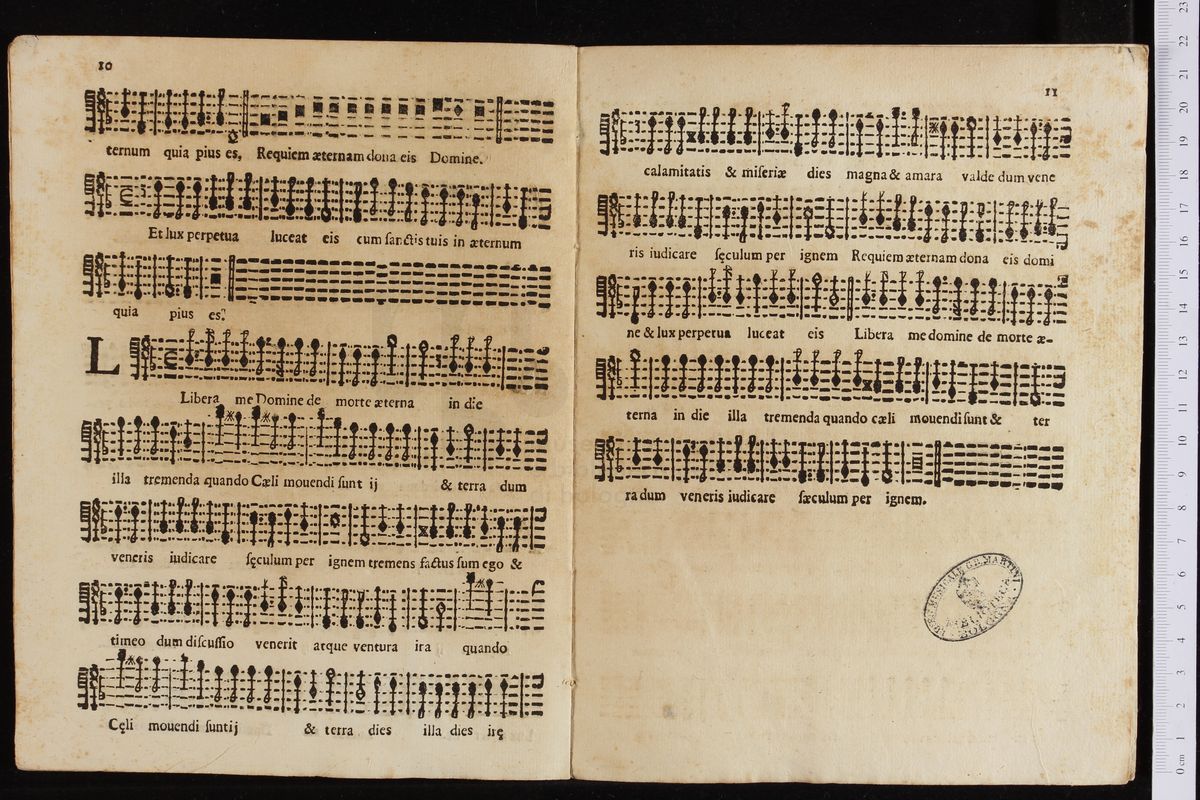 10
ternum quia pius es, Requiem æternam dona eis Domine.
Et lux perpetua luceat eis cum ſanctis tuis in æternum
quia pius es.
L
Libera me Domine de morte æterna in die
illa tremenda quando Cæli mouendi ſunt ij & terra dum
veneris iudicare ſęculum per ignem tremens factus ſum ego &
timeo dum diſcuſſio venerit atque ventura ira quando
Cęli mouendi ſunt ij & terra dies illa dies irę
11
calamitatis & miſeriæ dies magna & amara valde dum vene
ris iudicare ſęculum per ignem Requiem æternam dona eis domi
ne & lux perpetua luceat eis Libera me domine de morte æ-
terna in die illa tremenda quando cæli mouendi ſunt & ter
ra dum veneris iudicare ſæculum per ignem.
MARTINI
BOLOGNA
0 cm 1 2 3 4 5 6 7 8 9 10 11 12 13 14 15 16 17 18 19 20 21 22 23